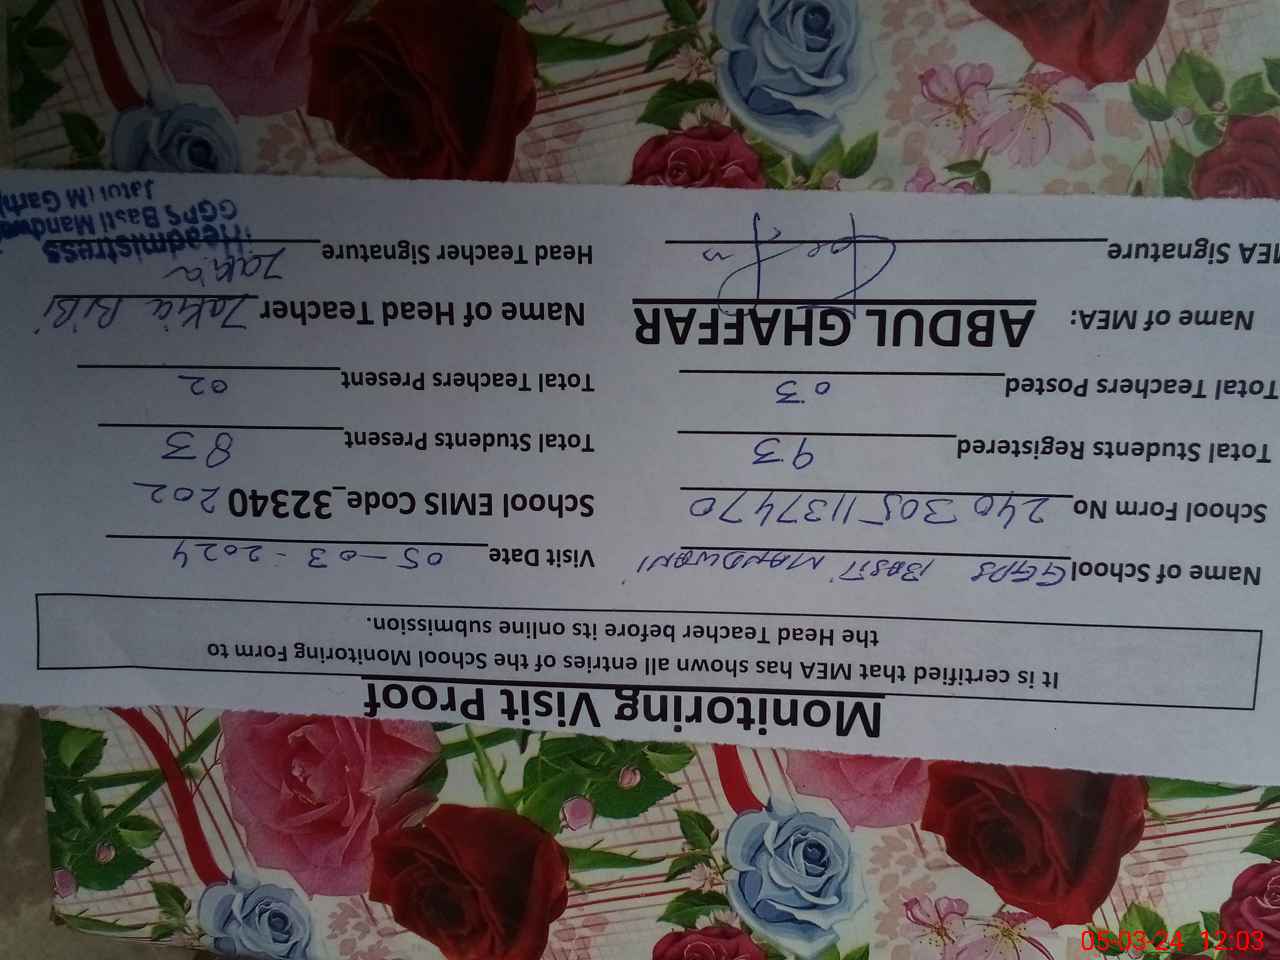 Monitoring Visit Proof
It is certified that MEA has shown all entries of the School Monitoring Form to
the Head Teacher before its online submission.
Name of School GGPS BASTI MANDWANI Visit Date 05-03-2024
School Form No 240 305 11374 70 School EMIS Code_32340 202
Total Students Registered 93 Total Students Present 83
Total Teachers Posted 03 Total Teachers Present 02
Name of MEA: ABDUL GHAFFAR Name of Head Teacher Zakia BiBi
MEA Signature Head Teacher Signature Zakia
Headmistress
GGPS Basti
Jatoi (M Garh
05-03-24 12:03